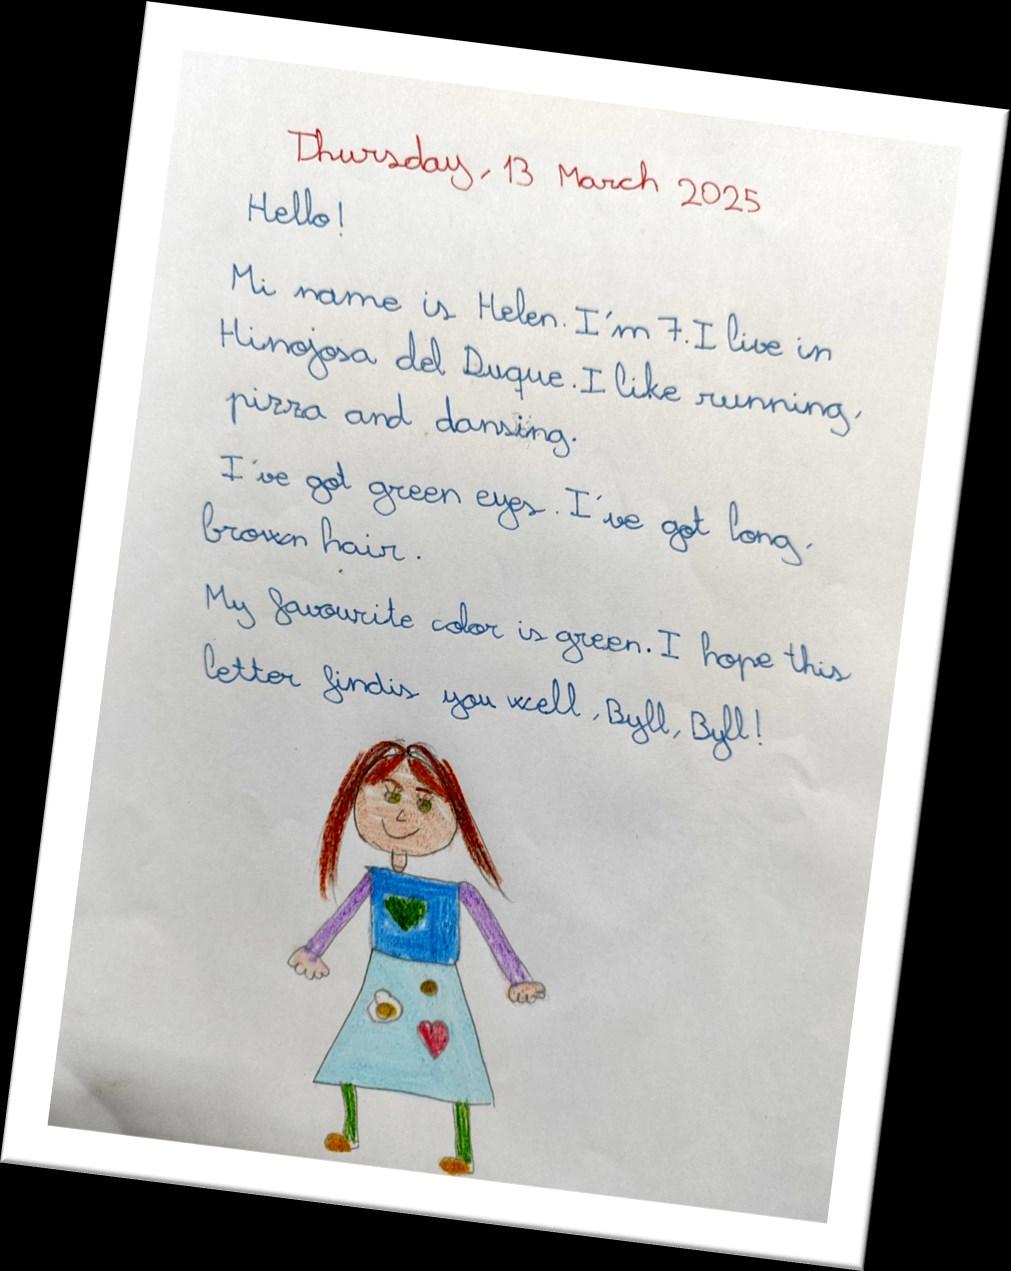 Thursday, 13 March 2025
Hello!
Mi name is Helen. I'm 7. I live in
Hinojosa del Duque. I like running,
pizza and dansing.
I've got green eyes. I've got long,
brown hair.
My favourite color is green. I hope this
letter findis you well, Byll, Byll!